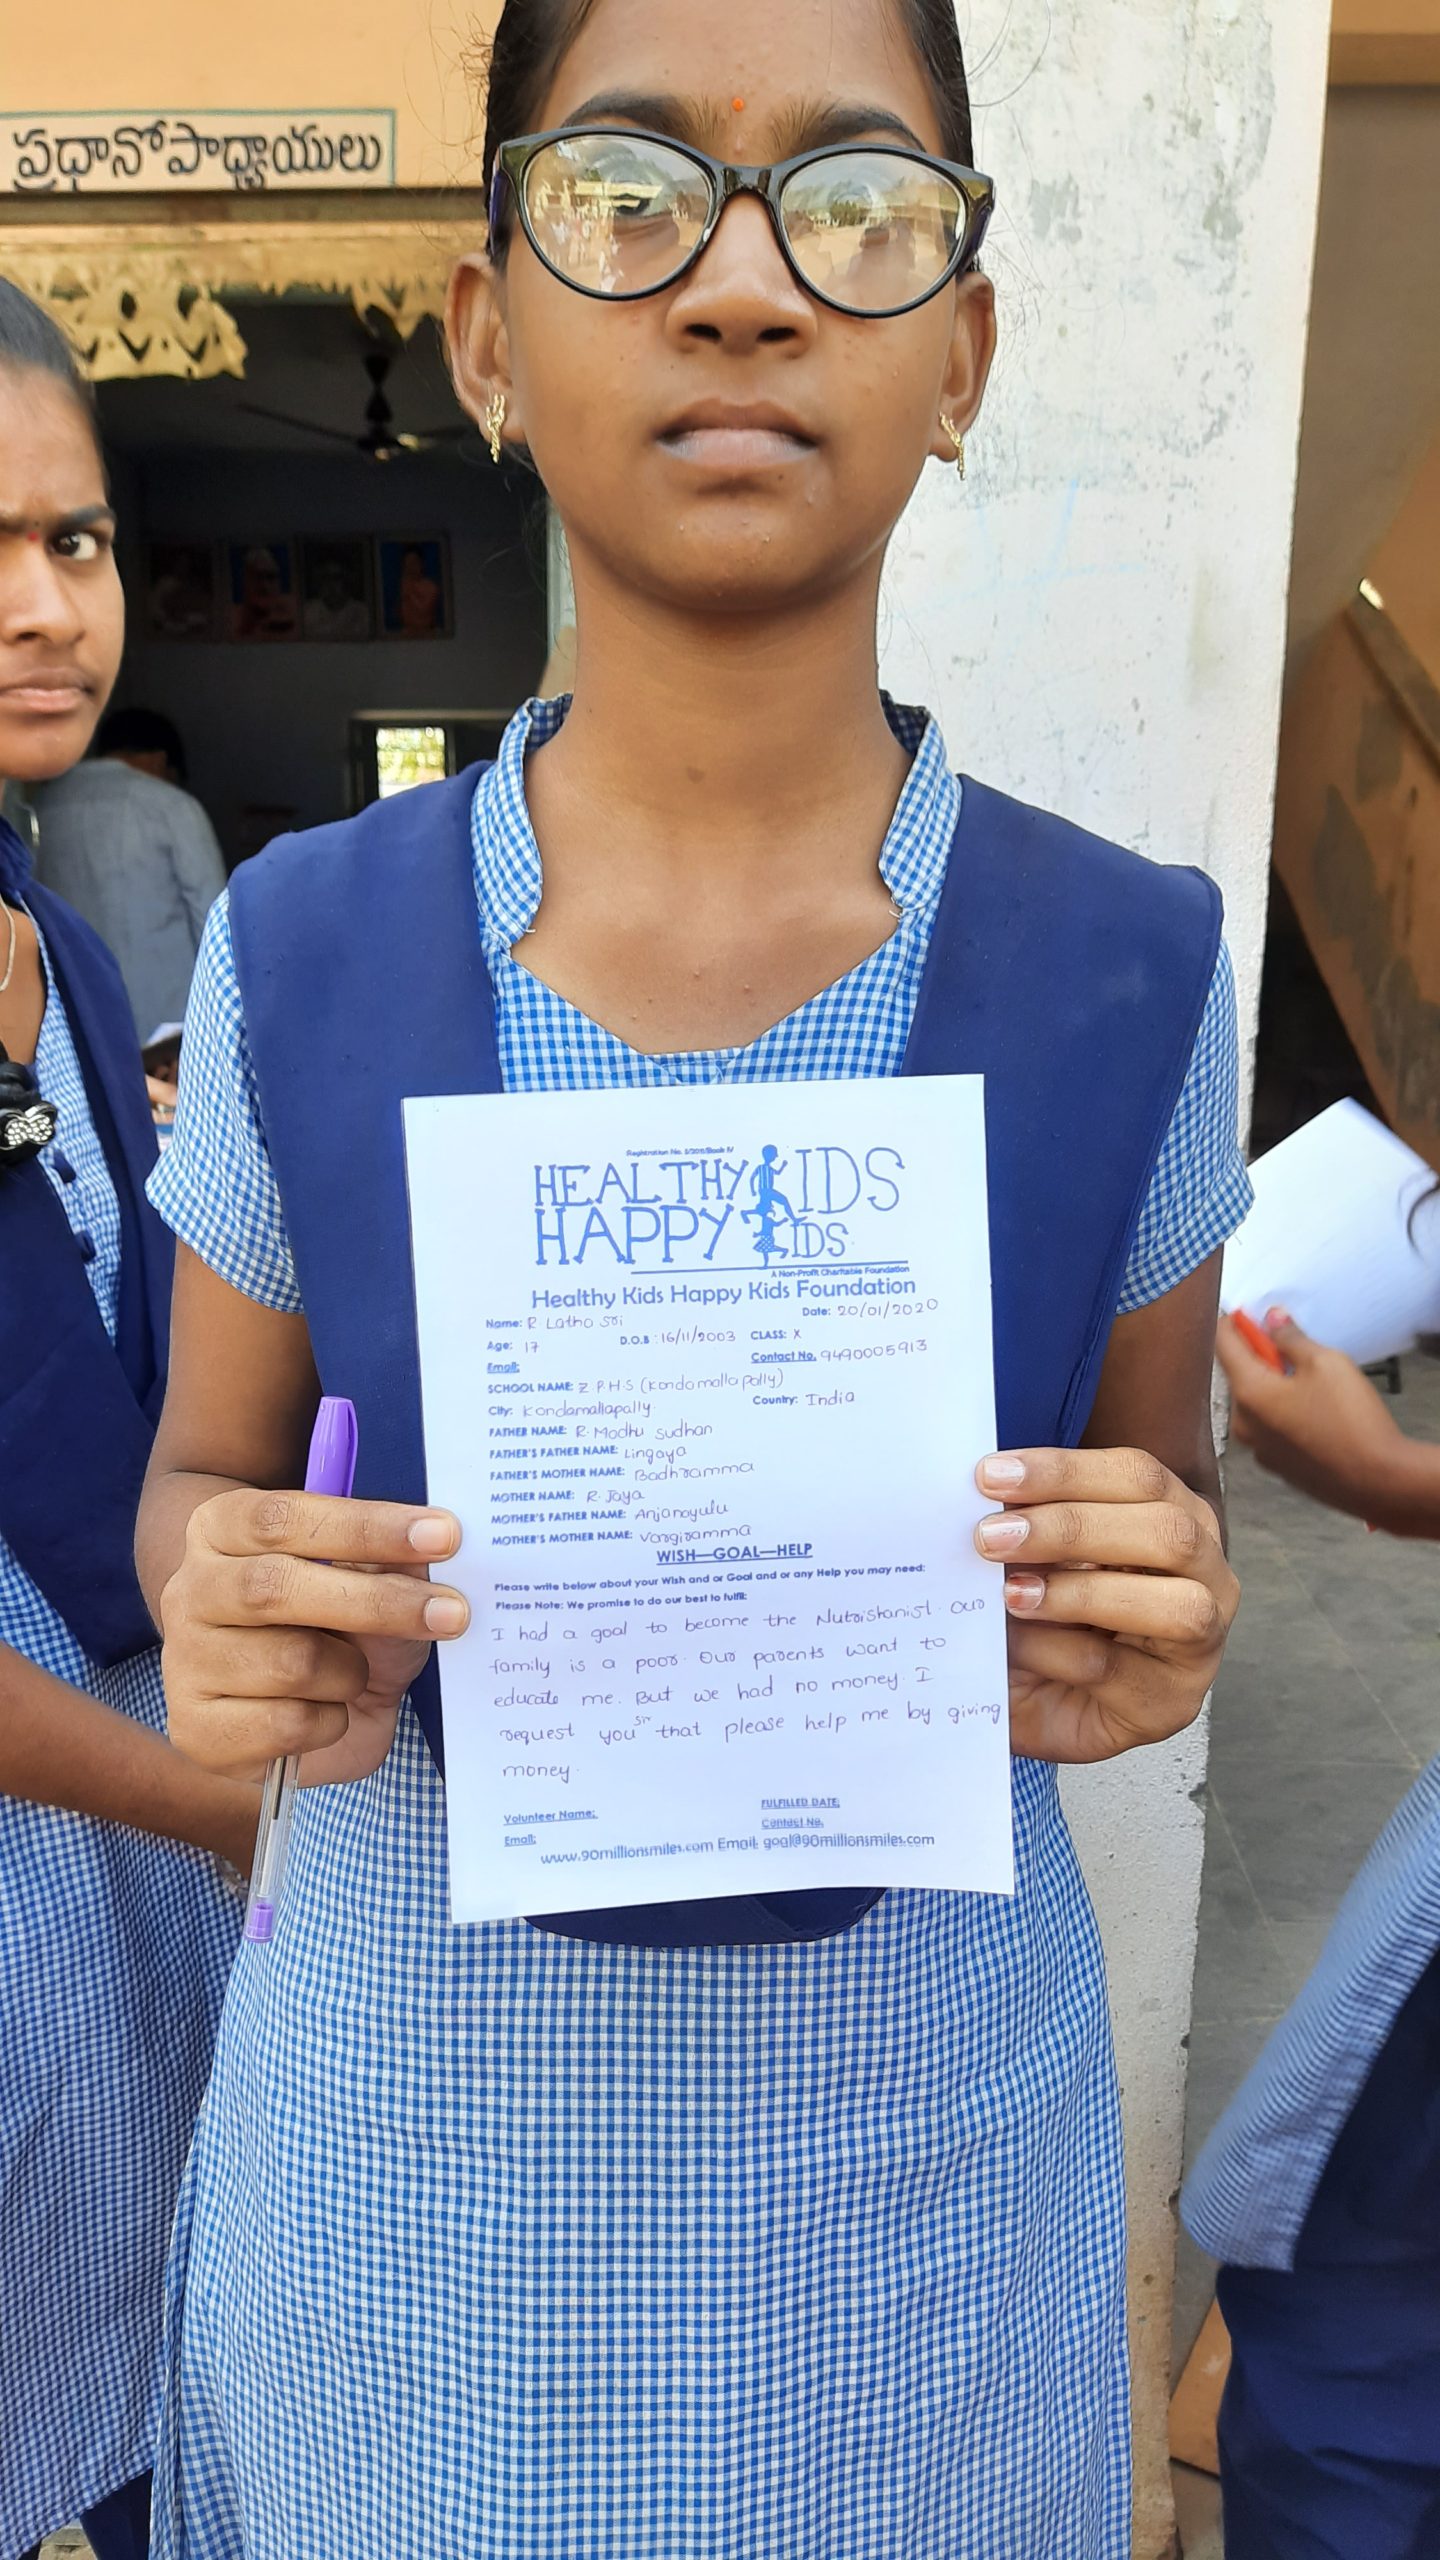 ప్రధానోపాధ్యాయులు
Registration No. 5/2015/Book IV
HEALTHY KIDS
HAPPY KIDS
A Non-Profit Charitable Foundation
Healthy Kids Happy Kids Foundation
Name: R Latha Sri Date: 20/01/2020
Age: 17 D.O.B: 16/11/2003 CLASS: X
Email: Contact No. 9490005913
SCHOOL NAME: Z.P.H.S (Kondamallapally)
City: Kondamallapally Country: India
FATHER NAME: R. Madhu Sudhan
FATHER'S FATHER NAME: Lingaya
FATHER'S MOTHER NAME: Badhramma
MOTHER NAME: R. Jaya
MOTHER'S FATHER NAME: Anjanayulu
MOTHER'S MOTHER NAME: Vargiramma
WISH—GOAL—HELP
Please write below about your Wish and or Goal and or any Help you may need:
Please Note: We promise to do our best to fulfil:
I had a goal to become the Nutrishanist. Our
family is a poor. Our parents want to
educate me. But we had no money. I
request you sir that please help me by giving
money.
Volunteer Name: FULFILLED DATE:
Email: Contact No.
www.90millionsmiles.com Email: goal@90millionsmiles.com